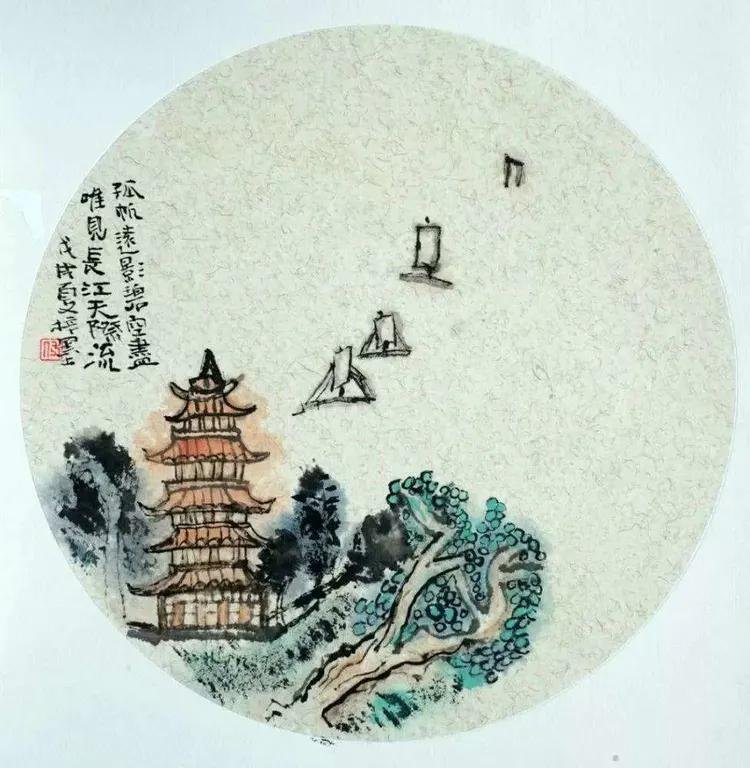 孤帆遠影碧空盡
唯見長江天際流
戊戌夏梓墨上